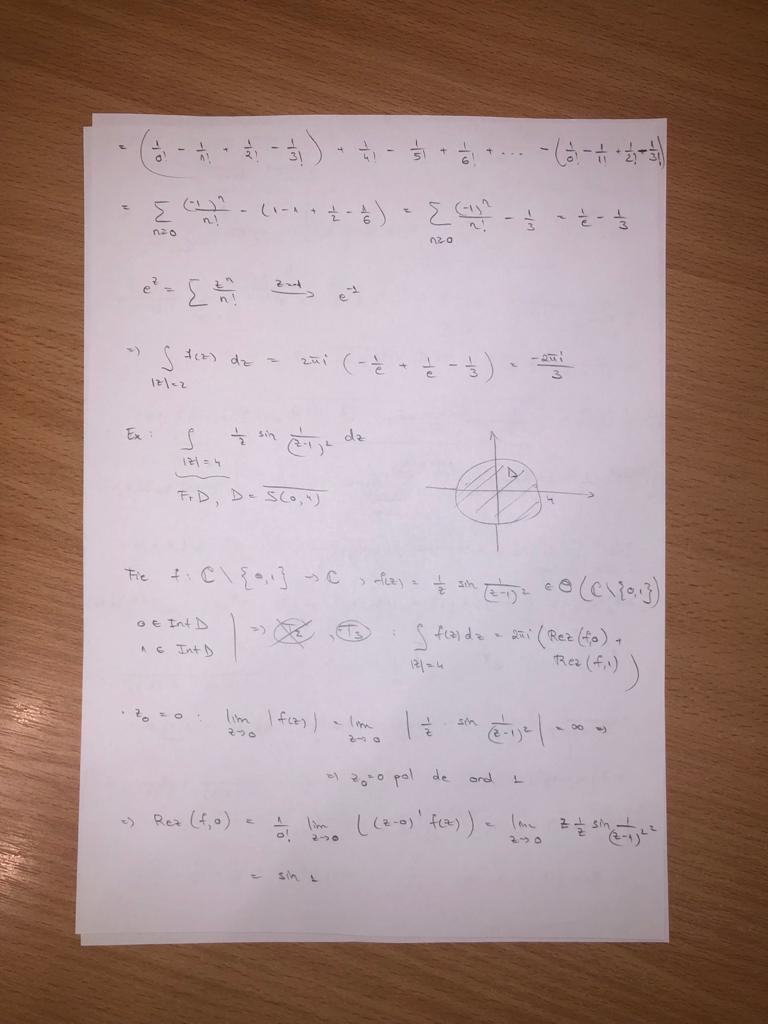 = (1/0! - 1/1! + 1/2! - 1/3!) + 1/4! - 1/5! + 1/6! + ... - (1/0! - 1/1! + 1/2! - 1/3!)
= ∑_{n≥0} (-1)^n/n! - (1-1 + 1/2 - 1/6) = ∑_{n≥0} (-1)^n/n! - 1/3 = 1/e - 1/3
e^z = ∑ z^n/n! \xrightarrow{z=-1} e^{-1}
=) ∫_{|z|=2} f(z) dz = 2πi (-1/e + 1/e - 1/3) = -2πi/3
Ex: ∫_{|z|=4} 1/z sin 1/(z-1)^2 dz
D
4
FrD, D = \overline{S(0,4)}
Fie f: ℂ \ {0,1} → ℂ, f(z) = 1/z sin 1/(z-1)^2 ∈ Θ(ℂ\{0,1})
0 ∈ Int D
1 ∈ Int D | =) T2, T3 : ∫_{|z|=4} f(z) dz = 2πi (Rez(f,0) +
Rez(f,1))
· z_0 = 0 : lim_{z→0} |f(z)| = lim_{z→0} |1/z · sin 1/(z-1)^2| = ∞ =)
=) z_0=0 pol de ord 1
=) Rez(f,0) = 1/0! lim_{z→0} ((z-0)^1 f(z)) = lim_{z→0} z 1/z sin 1/(z-1)^2
= sin 1